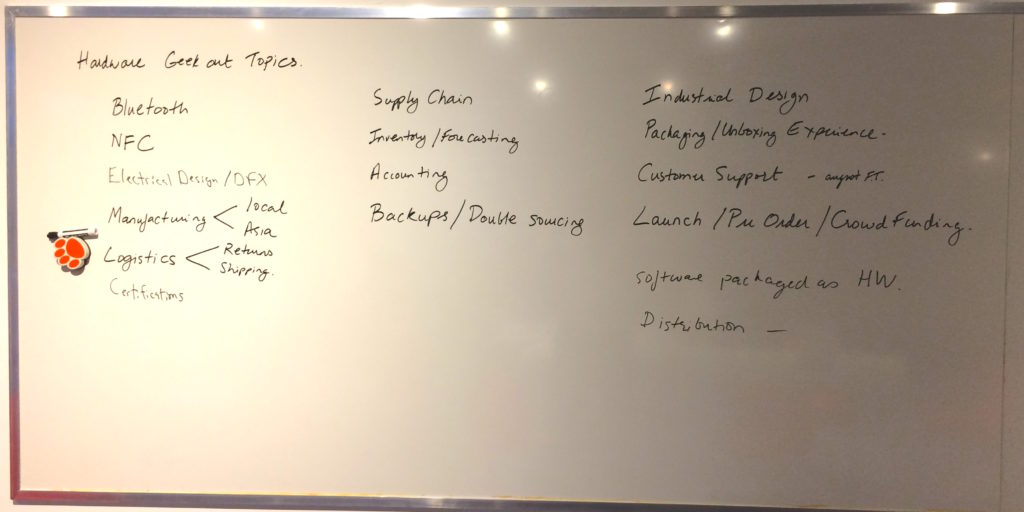 Hardware Geek out Topics.
Bluetooth
NFC
Electrical Design/DFX
Manufacturing < local
Asia
Logistics < Returns
Shipping.
Certifications
Supply Chain
Inventory/Forecasting
Accounting
Backups/Double sourcing
Industrial Design
Packaging/Unboxing Experience.
Customer Support - august FT.
Launch/Pre Order/Crowd Funding.
Software packaged as HW.
Distribution —